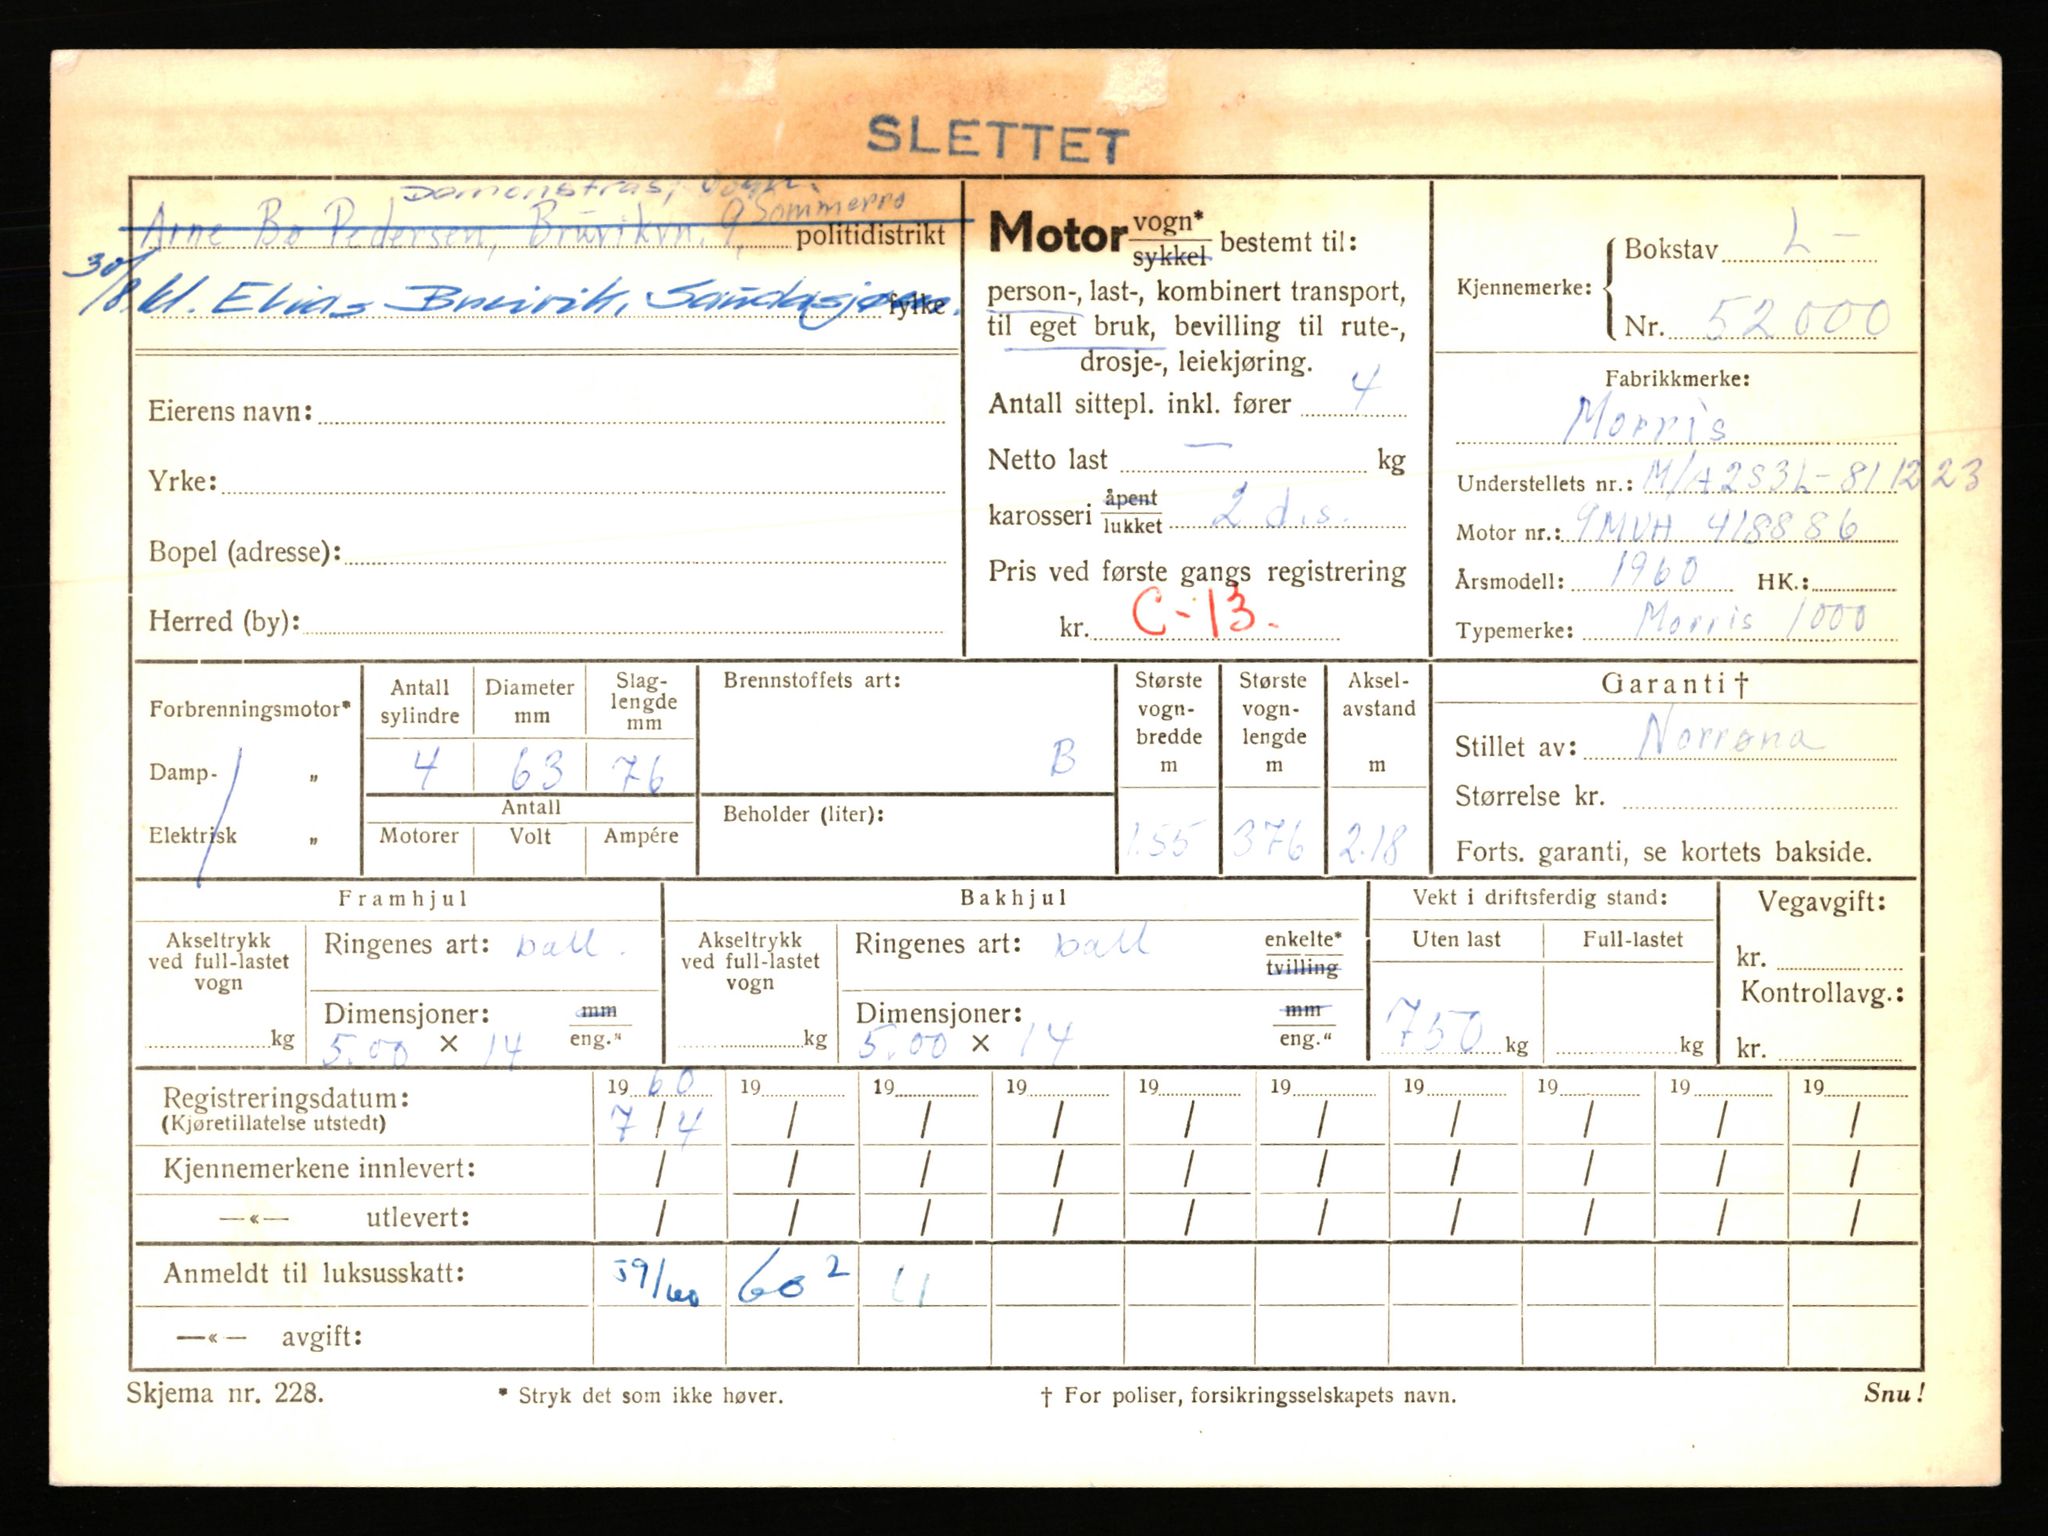 SLETTET
Demonstrasj. vogn.
Arne Bø Pedersen, Bruvikvn. 9, Sommerro politidistrikt
30/8. kl. Elias Breivik, Sandasjøen. fylke
Eierens navn:
Yrke:
Bopel (adresse):
Herred (by):
Motor vogn* sykkel bestemt til:
person-, last-, kombinert transport,
til eget bruk, bevilling til rute-,
drosje-, leiekjøring.
Antall sittepl. inkl. fører 4
Netto last — kg
karosseri åpent lukket 2 d.s.
Pris ved første gangs registrering
kr. C-13.
Kjennemerke: Bokstav L -
Nr. 52000
Fabrikkmerke:
Morris
Understellets nr.: M/A2S3L-811223
Motor nr.: 9MUH 418886
Årsmodell: 1960 HK.:
Typemerke: Morris 1000
Forbrenningsmotor*
Damp- „
Elektrisk „
Antall sylindre Diameter mm Slag-lengde mm
4 63 76
Antall
Motorer Volt Ampére
Brennstoffets art:
B
Beholder (liter):
Største vogn-bredde m
1.55
Største vogn-lengde m
376
Aksel-avstand m
2.18
Garanti †
Stillet av: Norrøna
Størrelse kr.
Forts. garanti, se kortets bakside.
Framhjul
Akseltrykk ved full-lastet vogn
kg
Ringenes art: ball.
Dimensjoner: mm
5.00 × 14 eng."
Bakhjul
Akseltrykk ved full-lastet vogn
kg
Ringenes art: ball enkelte* tvilling
Dimensjoner: mm
5.00 × 14 eng."
Vekt i driftsferdig stand:
Uten last Full-lastet
750 kg kg
Vegavgift:
kr.
Kontrollavg.:
kr.
Registreringsdatum: 1960 19 19 19 19 19 19 19 19 19
(Kjøretillatelse utstedt) 7/4 / / / / / / / / /
Kjennemerkene innlevert: / / / / / / / / / /
—«— utlevert: / / / / / / / / / /
Anmeldt til luksusskatt: 59/60 60 2 61
—«— avgift:
Skjema nr. 228. * Stryk det som ikke høver. † For poliser, forsikringsselskapets navn. Snu!